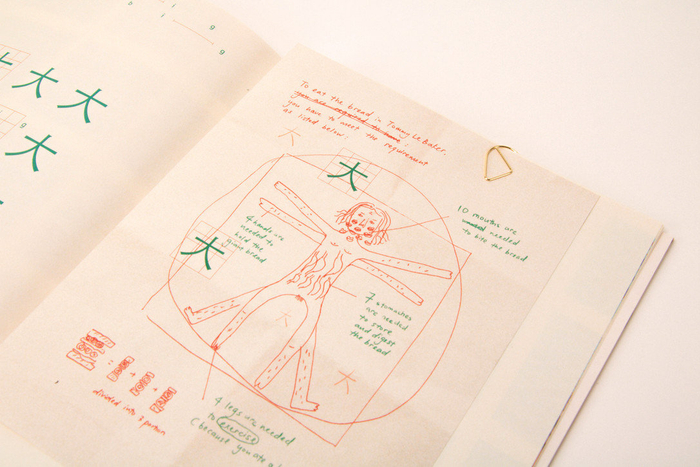 g
g
g
大
大
大
To eat the bread in Tommy Le Baker.
you have to meet the requirement
as listed below!
大
大
10 mouths are
needed
to bite the bread
4 hands are
needed to
hold the
bread
大
大
7 stomaches
are needed
to store
and digest
the bread
大
大
divided into 3 portion
4 legs are needed
to exercise
(because you ate a